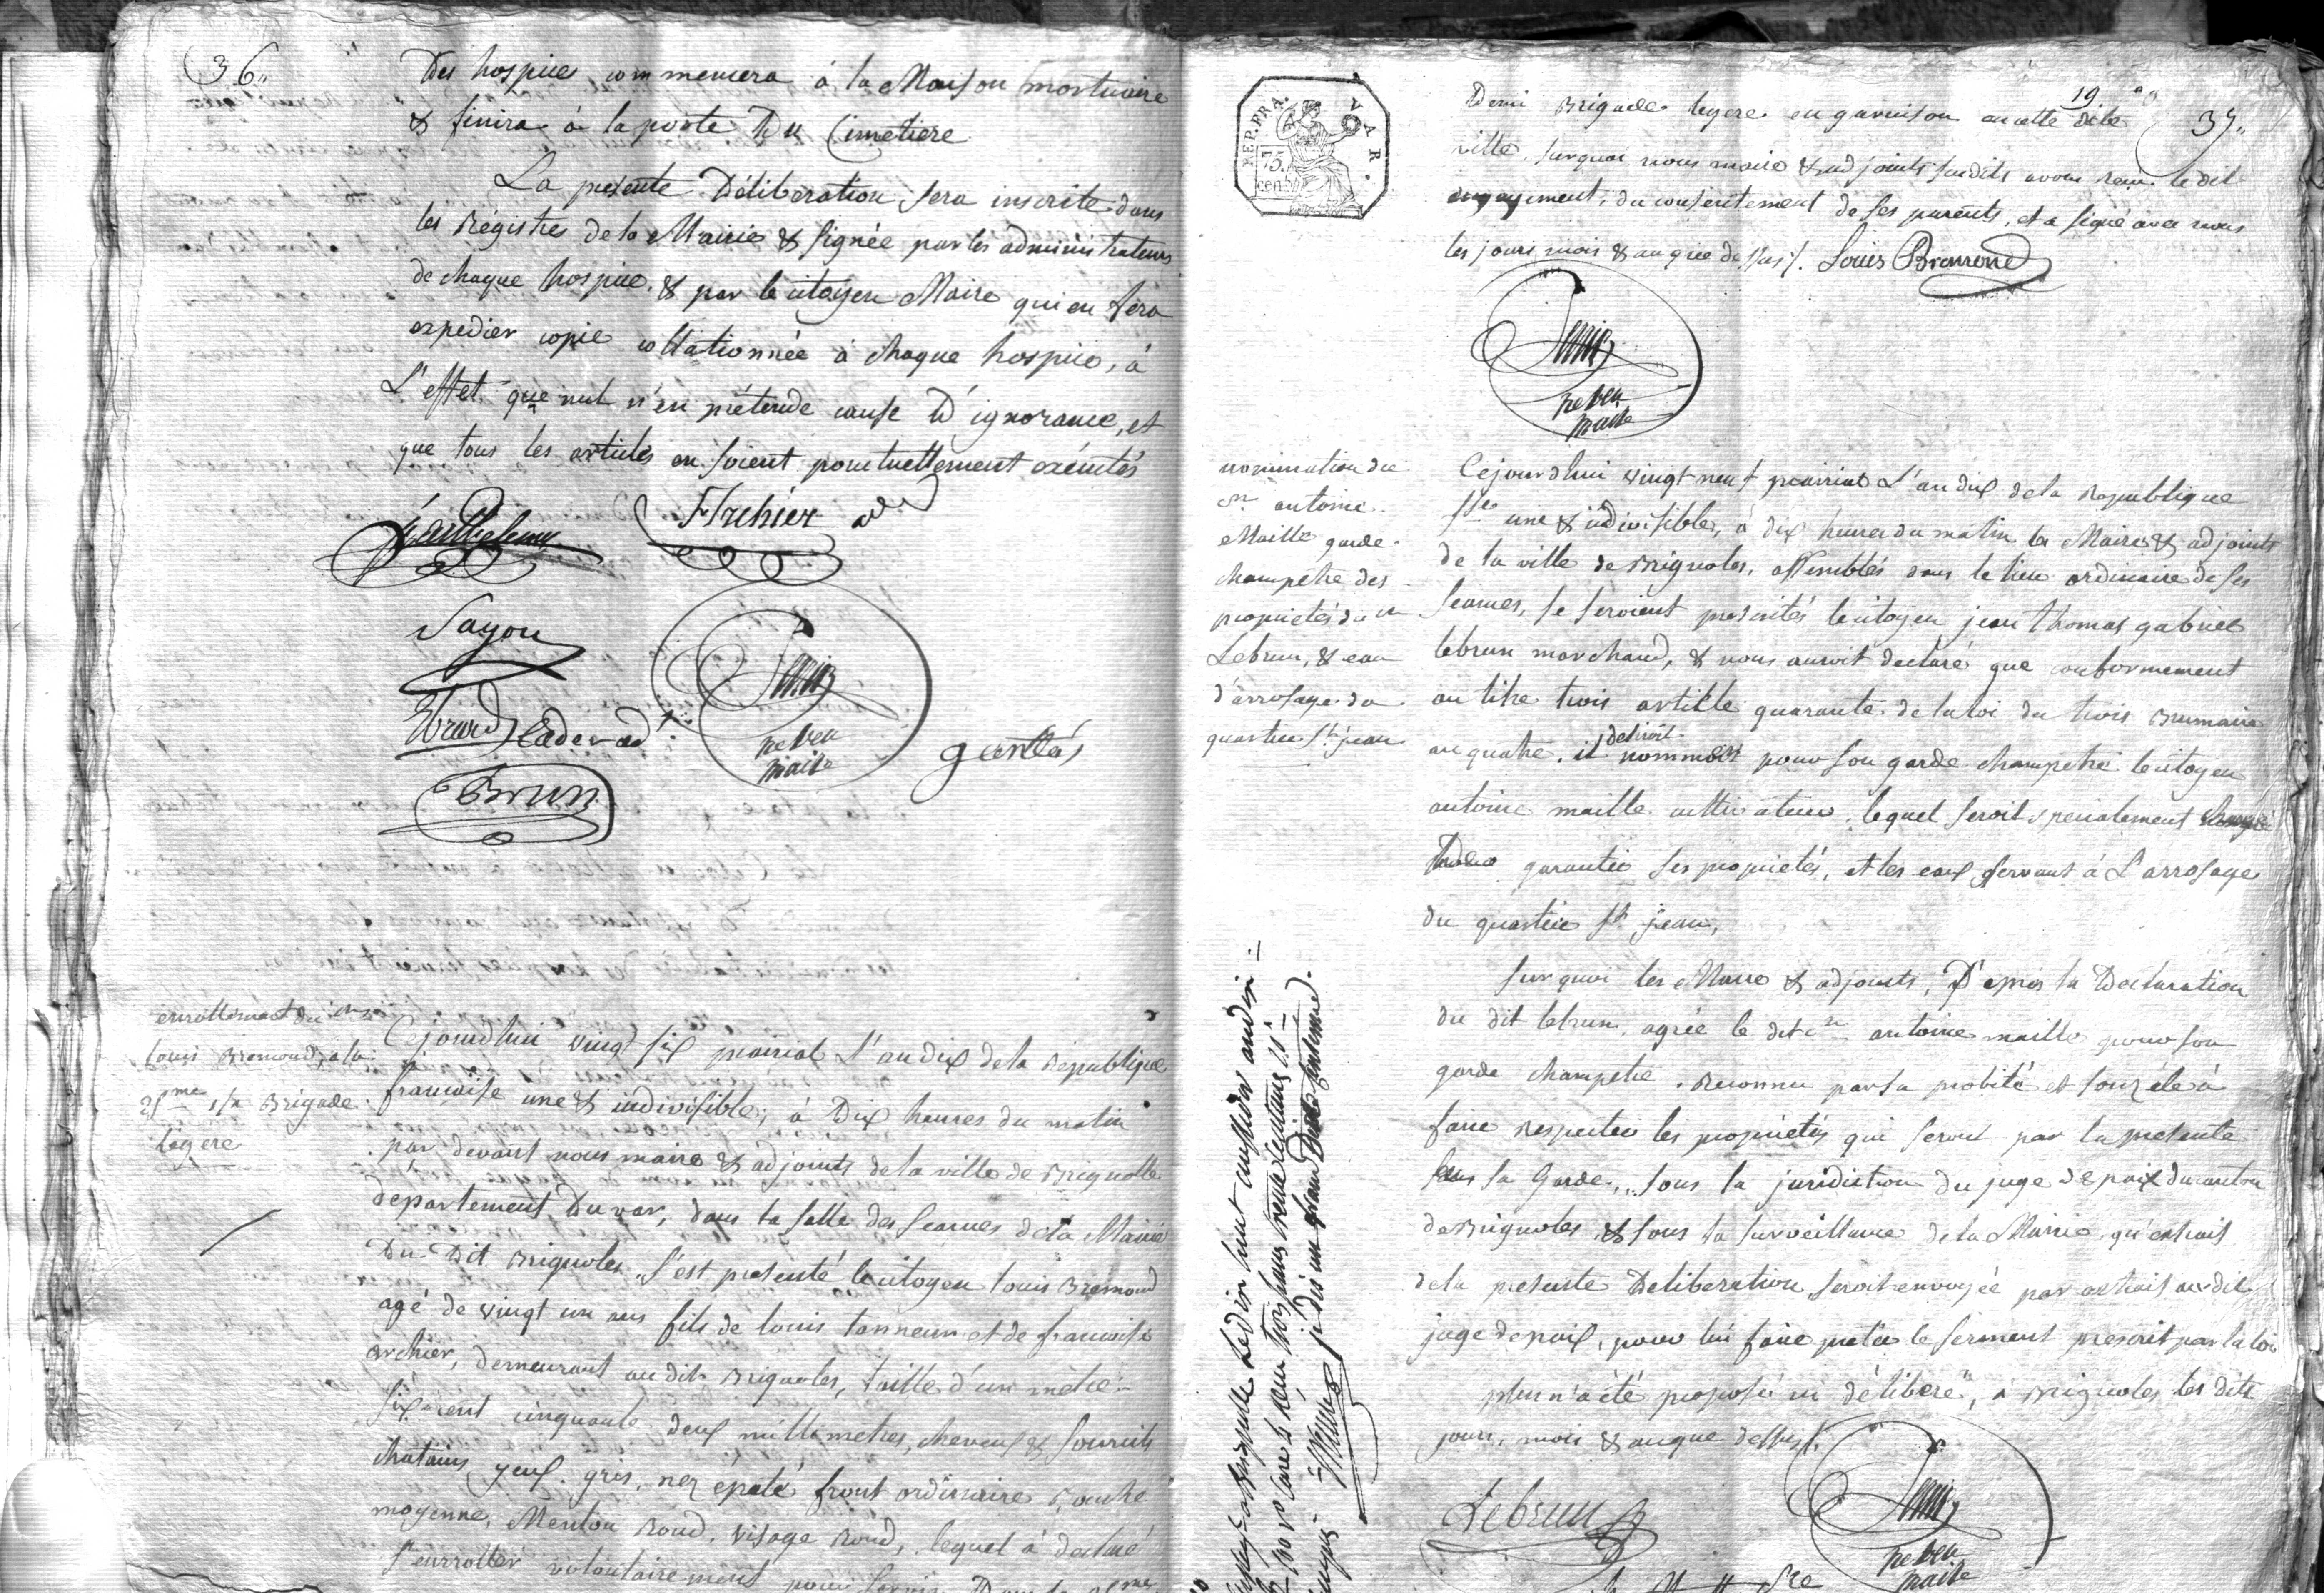 36"
Des hospices, commencera à la Maison mortuaire
& finira à la porte Du Cimetiere
La presente Déliberation sera inscrite dans
les Régistres de la Mairie & signée par les administrateurs
de chaque hospice, & par le citoyen Maire qui en fera
expedier copie collationnée à chaque hospice, à
L'effet que nul n'en prétende cause D'ignorance, et
que tous les articles en soient ponctuellement exécutés
Barthelemy
F Archier
Sayou
Ebrard
Cader
neveu
maire
Brun
enrollement du cn
Louis Bremond, à la
21me 1/2 Brigade
légére
Cejourdhui vingt six prairial L'an dix de la République
francaise une & indivisible; à Dix heures du matin
par devant nous maire & adjoints de la ville de Brignolle
departement Du var, dans la salle des seances de la Mairie
Du Dit Brignoles, s'est presenté le citoyen Louis Bremond
agé de vingt un ans fils de louis tanneur et de francoise
archier, demeurant au dit Brignoles, taille d'un mètre
six cent cinquante deux millimetres, cheveux & sourcils
chatains yeux gris, nez épaté front ordinaire, bouche
moyenne, Menton Rond, visage Rond, lequel à declaré
s'enroller volontairement pour servir Dans la
REP. FRA.
VAR.
75.
cent.
19
37"
Demi Brigade legere en garnison en cette dite
ville, surquoi nous maire & adjoints susdits avons recu le dit
engagement, du consentement de ses parents, et a signé avec nous
les jours mois & an que dessus /. Louis Bremond
neveu
maire
nomination du
cn antoine
Maille garde
champetre des
proprietés du cn
Lebrun, & eau
d'arrosage du
quartier St jean
Cejourdhui vingt neuf prairial L'an dix de la Republique
fse une & indivisible, à dix heures du matin les Maire & adjoints
de la ville de Brignoles, assemblés dans le lieu ordinaire de ses
seances, se seroient presentés le citoyen jean thomas gabriel
lebrun marchand, & nous auroit declaré que conformement
au titre trois article quarante de la loi du trois Brumaire
an quatre, il desiroit nommer pour son garde champetre le citoyen
antoine maille cultivateur, lequel seroit specialement chargé
de garantir ses proprietés, et les eaux servant à L'arrosage
du quartier St jean,
surquoi les Maire & adjoints, D'apres la Declaration
du dit lebrun, agrée le dit cn antoine maille pour son
garde champetre, Reconnu par sa probité et son zéle à
faire respecter les proprietés qui seront par la presente
sous sa Garde, sous la juridiction du juge de paix du canton
de Brignoles & sous la surveillance de la Mairie, qu'extrait
de la presente Deliberation seroit envoyée par extrait au dit
juge de paix, pour lui faire preter le serment prescrit par la loi
plus n'a été proposé ni déliberé, à Brignoles les dits
jours, mois & an que dessus /.
Lebrun
neveu
maire